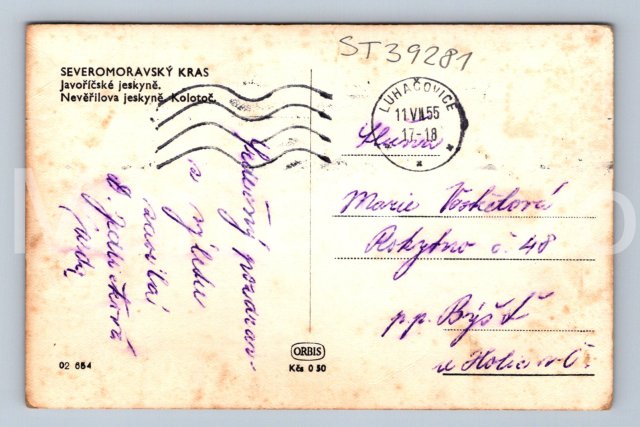 ST39281
SEVEROMORAVSKÝ KRAS
Javoříčské jeskyně.
Nevěřilova jeskyně. Kolotoč.
LUHAČOVICE
11.VII.55
17-18
Slečna
Marie Voskétová
Rokytno č. 48
pp. Býšť
u Holic v Č.
Srdečný pozdrav
z výletu
zasílá
ORBIS
Kčs 0 50
02 654